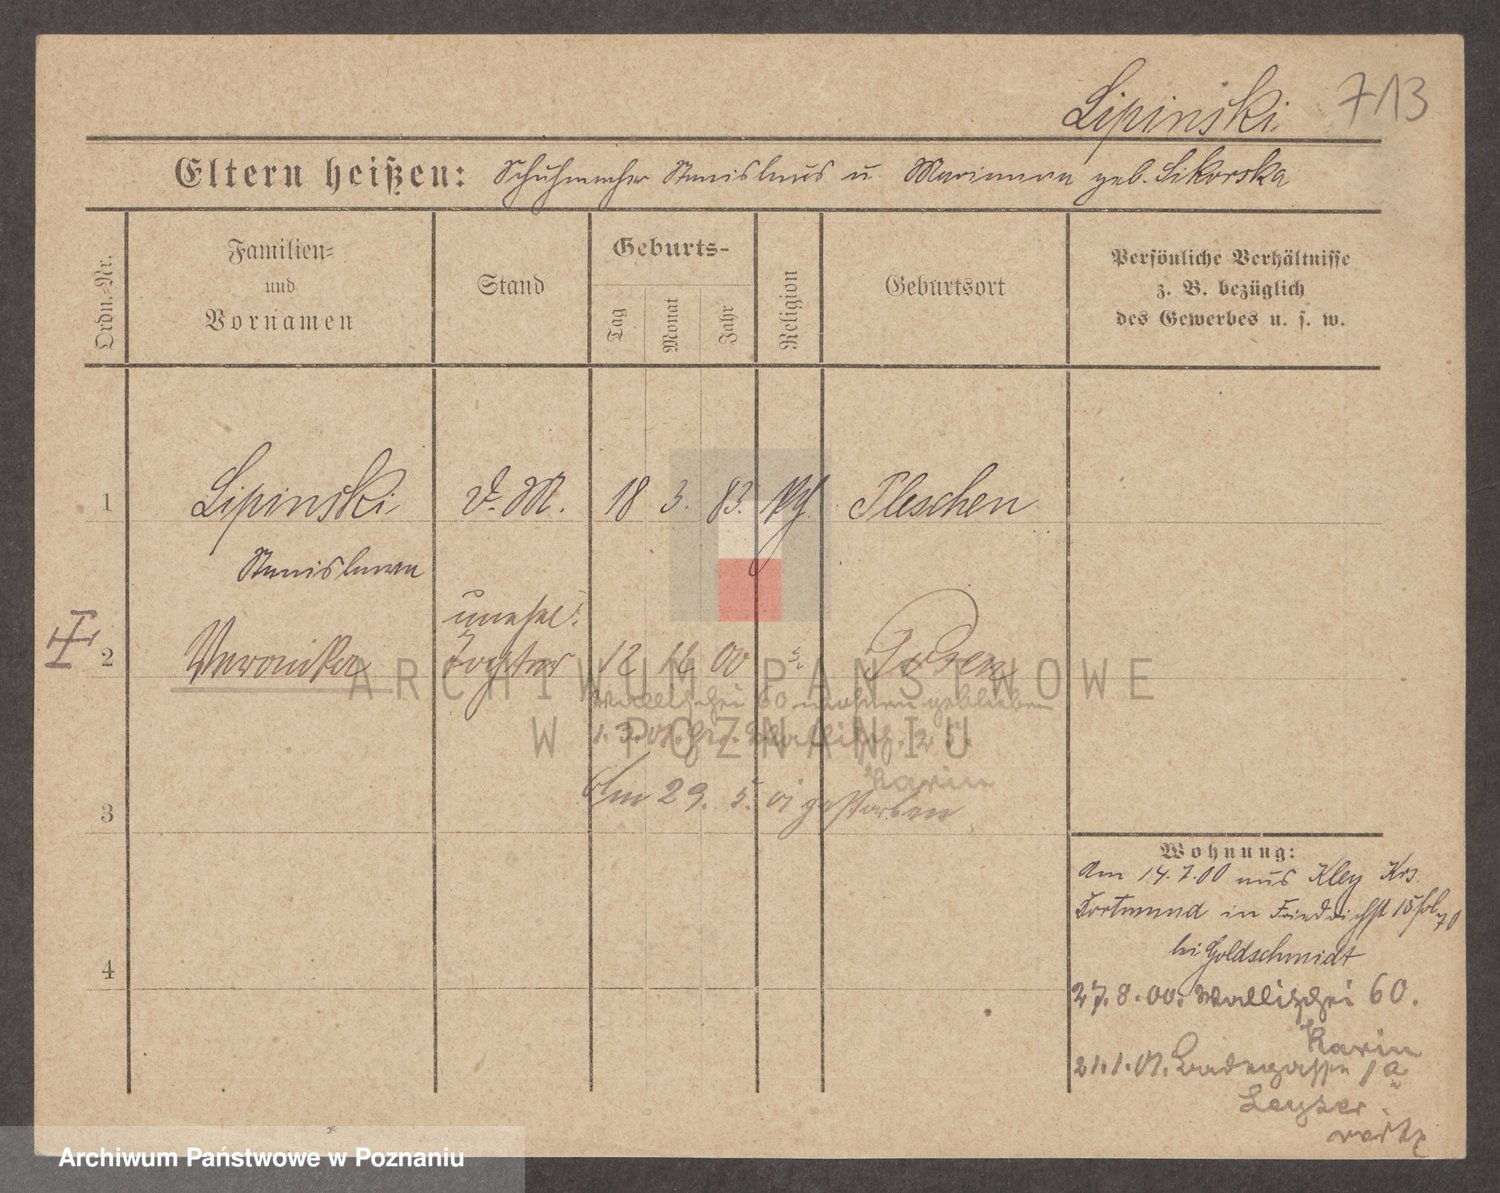 Lipinski 713
Eltern heißen: Schuhmacher Stanislaus u Marianna geb. Sikorska
Ordn.-Nr.
Familien-
und
Vornamen
Stand
Geburts-
Tag
Monat
Jahr
Religion
Geburtsort
Persönliche Verhältnisse
z. B. bezüglich
des Gewerbes u. s. w.
1 Lipinski d. M. 18 3. 83. Pleschen
Stanislawa
unehel.
2 Veronika Tochter 12 00 Posen
Wallischei 60 wohnen geblieben
1.3.01.
Karin
3 am 29. 5. 01 gestorben
Wohnung:
Am 14.7.00 aus Kley Krs.
Dortmund in Friedrichst 15
bei Goldschmidt
4
27.8.00. Wallischei 60.
Karin
21.1.01. Badegasse 1a
Leyser
ARCHIWUM PAŃSTWOWE
W POZNANIU
Archiwum Państwowe w Poznaniu